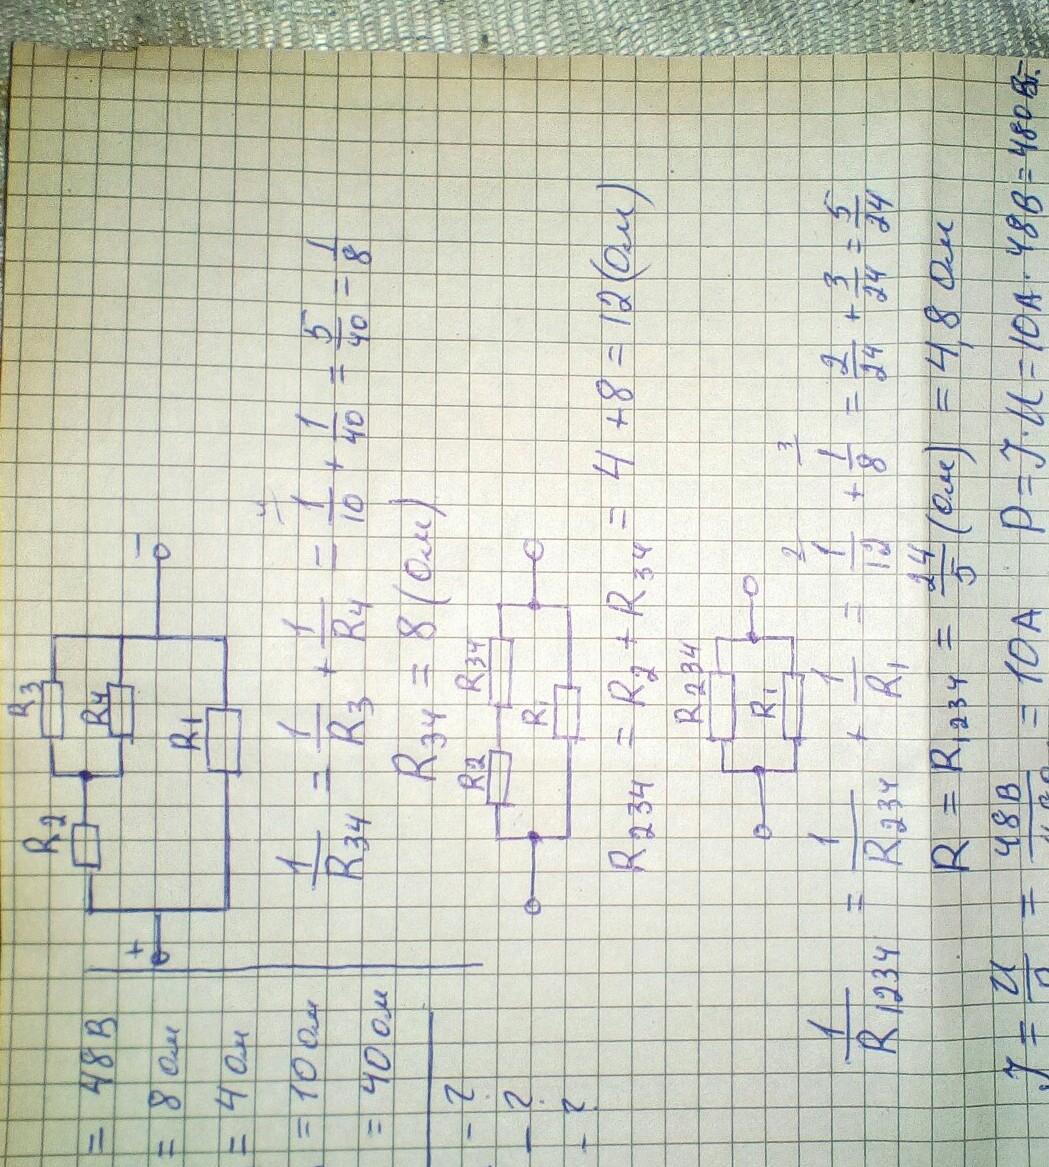 = 48 В
= 8 Ом
= 4 Ом
= 10 Ом
= 40 Ом
- ?
- ?
- ?
+ R2 R3 R4 R1 -
1/R34 = 1/R3 + 1/R4 = 1/10 + 1/40 = 5/40 = 1/8
R34 = 8 (Ом)
R2 R34 R1
R234 = R2 + R34 = 4 + 8 = 12 (Ом)
R234 R1
1/R1234 = 1/R234 + 1/R1 = 1/12 + 1/8 = 2/24 + 3/24 = 5/24
R = R1234 = 24/5 (Ом) = 4,8 Ом
= 48 В = 10 А P = J · U = 10 А · 48 В = 480 Вт.